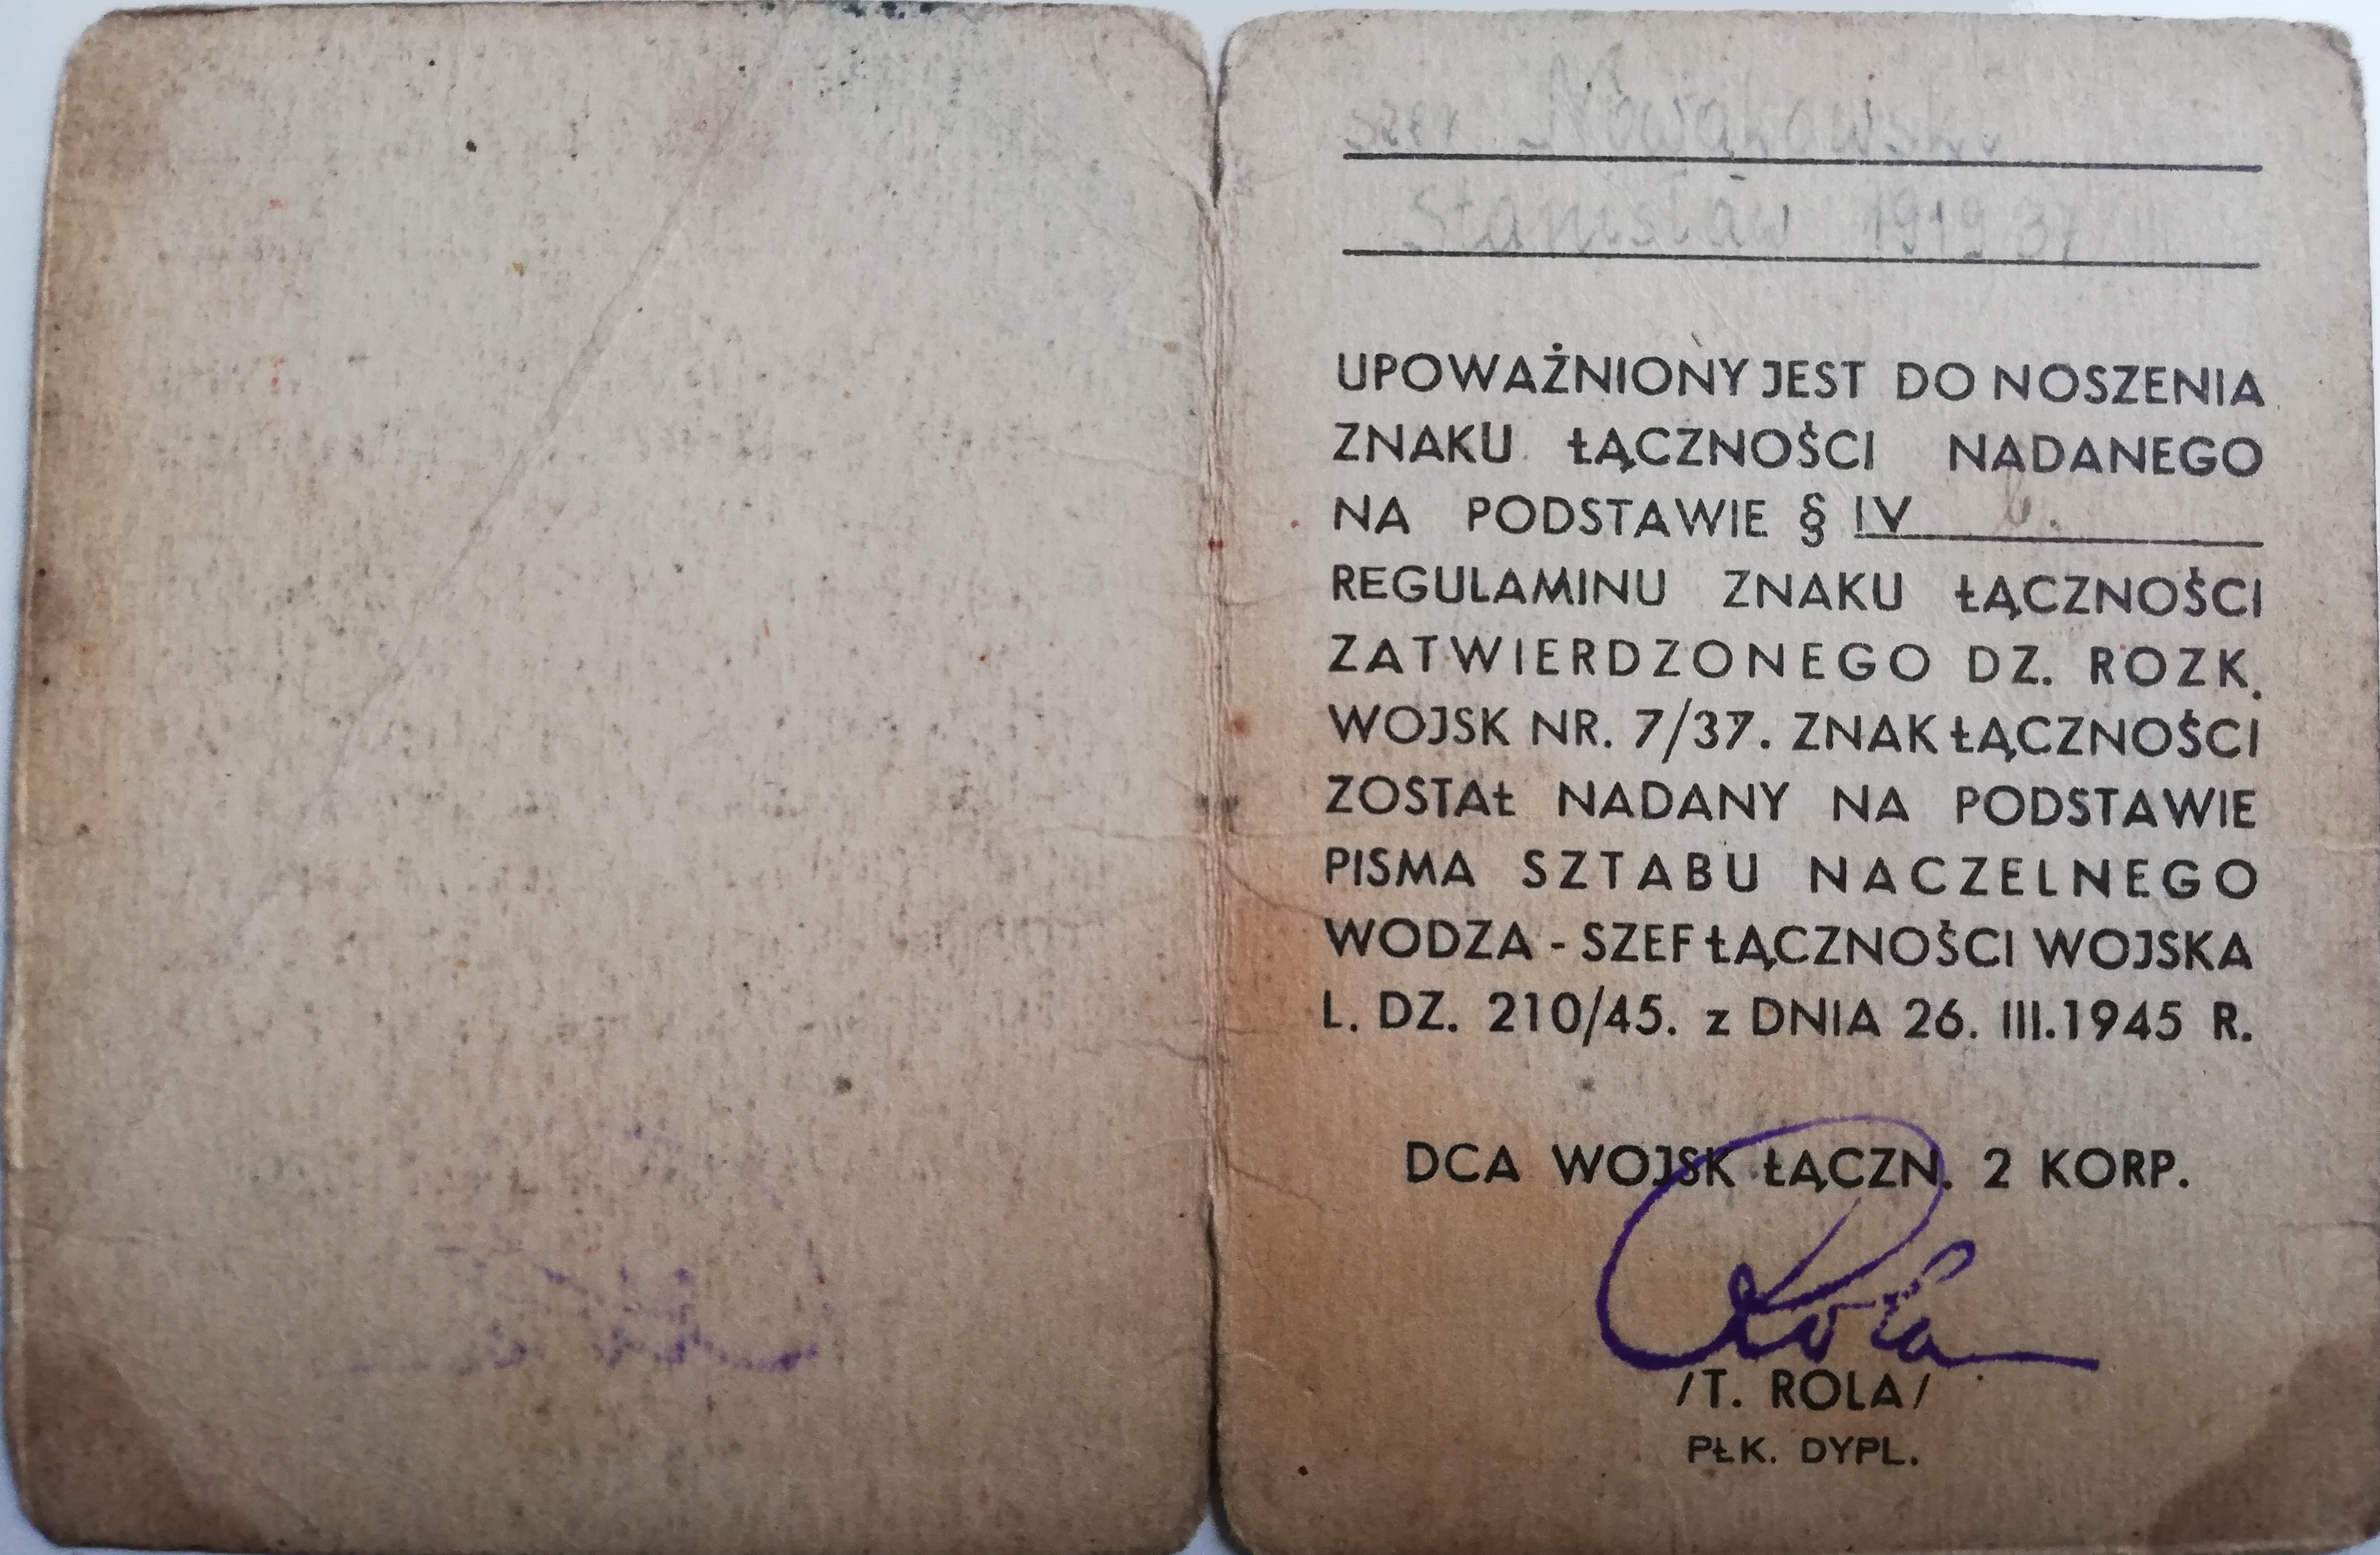 szer Nowakowski
Stanisław 1919 37
UPOWAŻNIONY JEST DO NOSZENIA
ZNAKU ŁĄCZNOŚCI NADANEGO
NA PODSTAWIE § IV b.
REGULAMINU ZNAKU ŁĄCZNOŚCI
ZATWIERDZONEGO DZ. ROZK.
WOJSK NR. 7/37. ZNAK ŁĄCZNOŚCI
ZOSTAŁ NADANY NA PODSTAWIE
PISMA SZTABU NACZELNEGO
WODZA - SZEF ŁĄCZNOŚCI WOJSKA
L. DZ. 210/45. z DNIA 26. III.1945 R.
DCA WOJSK ŁĄCZN. 2 KORP.
Rola
/T. ROLA/
PŁK. DYPL.